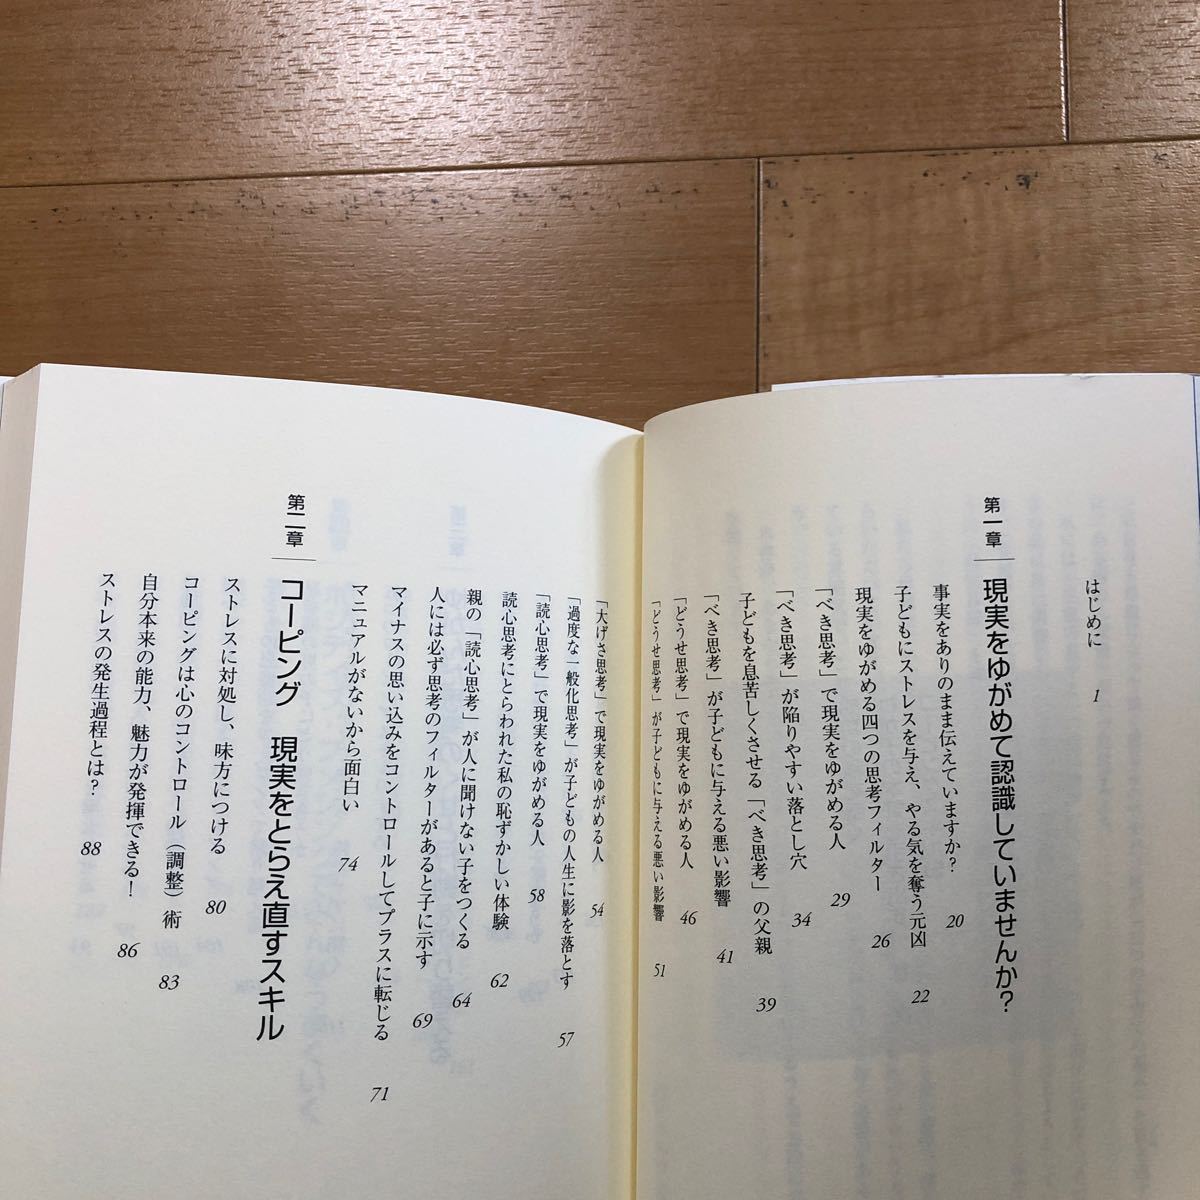 はじめに 1
第一章 現実をゆがめて認識していませんか?
事実をありのまま伝えていますか? 20
子どもにストレスを与え、やる気を奪う元凶 22
現実をゆがめる四つの思考フィルター 26
「べき思考」で現実をゆがめる人 29
「べき思考」が陥りやすい落とし穴 34
子どもを息苦しくさせる「べき思考」の父親 39
「べき思考」が子どもに与える悪い影響 41
「どうせ思考」で現実をゆがめる人 46
「どうせ思考」が子どもに与える悪い影響 51
「大げさ思考」で現実をゆがめる人 54
「過度な一般化思考」が子どもの人生に影を落とす 57
「読心思考」で現実をゆがめる人 58
読心思考にとらわれた私の恥ずかしい体験 62
親の「読心思考」が人に聞けない子をつくる 64
人には必ず思考のフィルターがあると子に示す 69
マイナスの思い込みをコントロールしてプラスに転じる 71
マニュアルがないから面白い 74
第二章 コーピング 現実をとらえ直すスキル
ストレスに対処し、味方につける 80
コーピングは心のコントロール(調整)術 83
自分本来の能力、魅力が発揮できる! 86
ストレスの発生過程とは? 88